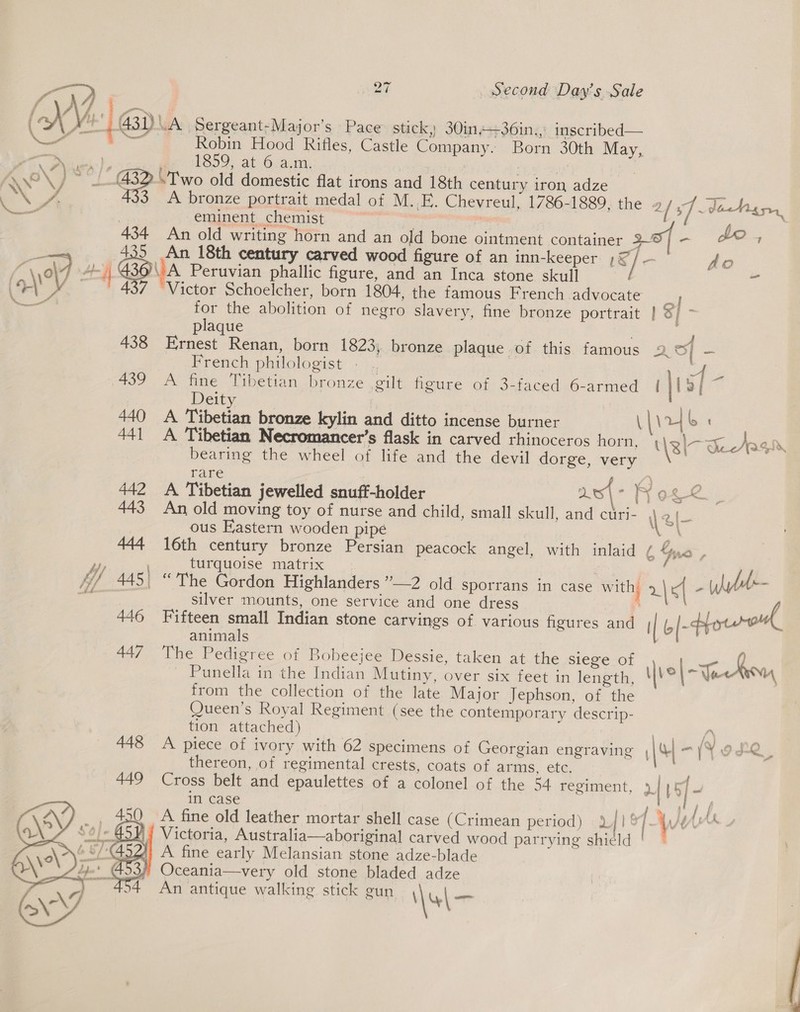 27 Second Day's Sale
431 A Sergeant-Major's Pace stick, 30in.—36in., inscribed—
Robin Hood Rifles, Castle Company. Born 30th May,
1859, at 6 a.m.
432 Two old domestic flat irons and 18th century iron adze
433 A bronze portrait medal of M. E. Chevreul, 1786-1889, the 2/5/-
eminent chemist
434 An old writing horn and an old bone ointment container do
435 An 18th century carved wood figure of an inn-keeper do
436 A Peruvian phallic figure, and an Inca stone skull
437 Victor Schoelcher, born 1804, the famous French advocate
for the abolition of negro slavery, fine bronze portrait
plaque
438 Ernest Renan, born 1823, bronze plaque of this famous
French philologist
439 A fine Tibetian bronze gilt figure of 3-faced 6-armed
Deity
440 A Tibetian bronze kylin and ditto incense burner
441 A Tibetian Necromancer's flask in carved rhinoceros horn,
bearing the wheel of life and the devil dorge, very
rare
442 A Tibetian jewelled snuff-holder
443 An old moving toy of nurse and child, small skull, and curi-
ous Eastern wooden pipe
444 16th century bronze Persian peacock angel, with inlaid
turquoise matrix
445 "The Gordon Highlanders"—2 old sporrans in case with
silver mounts, one service and one dress
446 Fifteen small Indian stone carvings of various figures and
animals
447 The Pedigree of Bobeejee Dessie, taken at the siege of
Punella in the Indian Mutiny, over six feet in length,
from the collection of the late Major Jephson, of the
Queen's Royal Regiment (see the contemporary descrip-
tion attached)
448 A piece of ivory with 62 specimens of Georgian engraving
thereon, of regimental crests, coats of arms, etc.
449 Cross belt and epaulettes of a colonel of the 54 regiment,
in case
450 A fine old leather mortar shell case (Crimean period)
451 Victoria, Australia—aboriginal carved wood parrying shield
452 A fine early Melansian stone adze-blade
453 Oceania—very old stone bladed adze
454 An antique walking stick gun